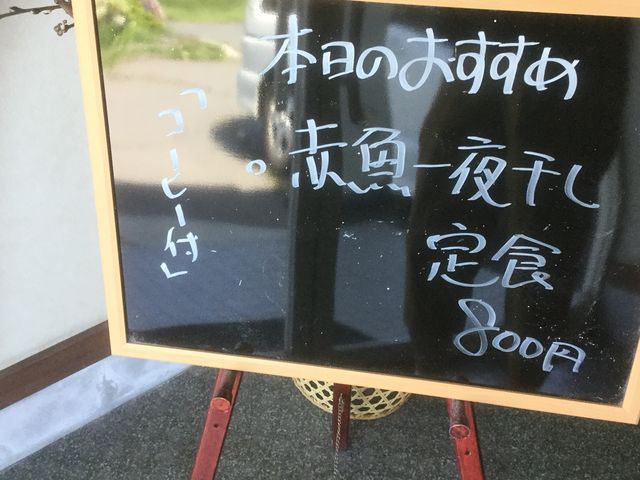 本日のおすすめ
。赤魚一夜干し
定食
800円
「コーヒー付」